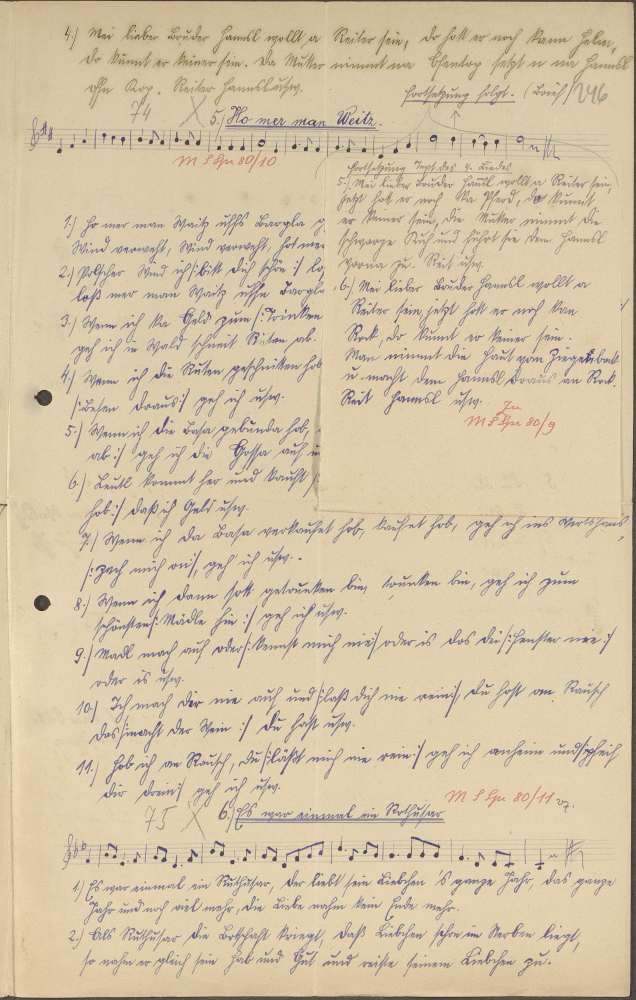 4.) Mei lieber Bruder Hannsl wollt a Reiter sein, do hott er noch kann Helm,
do kunnt er keiner sein. Da Mutter nimmt na setzt n na Hannsl
Kop. Reiter Hannsl usw.
Fortsetzung folgt. (Brief)
246
74 X 5.) Ho mer man Weitz.
M S Spr 80/10
Fortsetzung Text des 4. Liedes
5.) Mei lieber Bruder Hannsl wollt a Reiter sein,
jetzt hot er noch ka Pferd, do kunnt
er keiner sein, die Mutter nimmt die
schwarze Kuh und führt sie dem Hannsl
vorna zu. Reit usw.
6.) Mei lieber Bruder Hannsl wollt a
Reiter sein, jetzt hott er noch kan
Rock, do kunnt er keiner sein.
Man nimmt die Haut vom Ziegenbock
u. macht dem Hannsl draus an Rock.
Reit Hannsl usw.
Zu
M S Spr 80/9
1.) Ho mer man Waitz uffs Bargla
Wind verweht, Wind verweht, hot mer
2.) Polscher Wind ich /: bitt dich schön :/
loß mer man Waitz uffn Bargla
3.) Wenn ich ka Geld zum /: Trinken
geh ich in Wald schneit Ruten ab.
4.) Wenn ich die Ruten geschnitten hob
/: Besen draus :/ geh ich usw.
5.) Wenn ich die Basa gebunda hob,
ab :/ geh ich die Gossa auf
6.) Leutl kommt her und kauft /:
hob :/ daß ich Geld usw.
7.) Wenn ich da Basa verkaufet hob, kaufet hob, geh ich ins Wertshaus,
/: zech mich on :/, geh ich usw.
8.) Wenn ich dann sott getrunken bin, trunken bin, geh ich zum
schönsten /: Mädle hin :/ geh ich usw.
9.) Madl mach auf oder /: kennst mich nie :/ oder is das dei /: Fenster nie :/
oder is usw.
10.) Ich mach dir nie auf und /: laß dich nie rein :/, du host an Rausch
das /: macht der Wein :/ du host usw.
11.) Hob ich an Rausch, du /: läßt mich nie rein :/ geh ich anheim und /: pfeif
dir drein :/ geh ich usw.
M S Spr 80/11
75 X 6.) Es war einmal ein Rothusar
1.) Es war einmal ein Ruthusar, der liebt sein Liebchen 's ganze Jahr, das ganze
Jahr und noch viel mehr, die Liebe nahm kein Ende mehr.
2.) Als Ruthusar die Botschaft kriegt, daß Liebchen schon im Sterben liegt,
so nahm er gleich sein Hab und Gut und reiste seinem Liebchen zu.